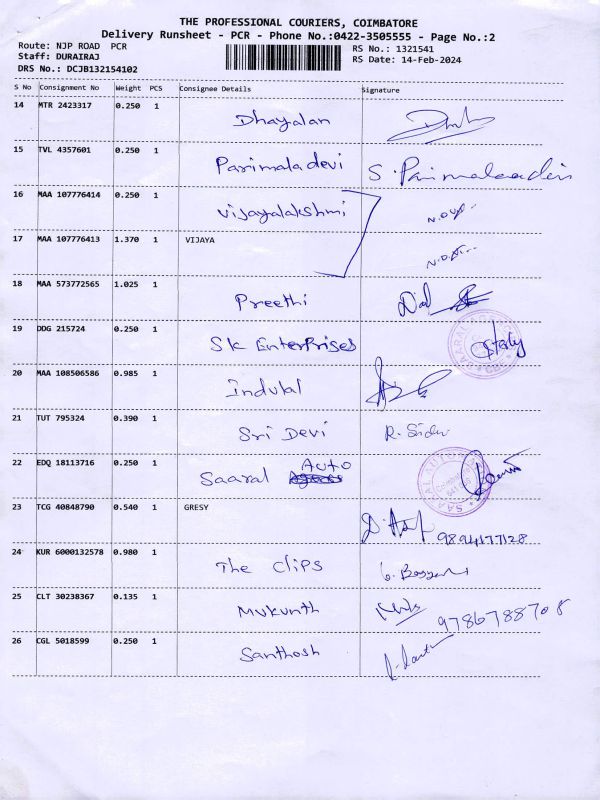 THE PROFESSIONAL COURIERS, COIMBATORE
Delivery Runsheet - PCR - Phone No.:0422-3505555 - Page No.:2
Route: NJP ROAD PCR
RS No.: 1321541
Staff: DURAIRAJ
RS Date: 14-Feb-2024
DRS No.: DCJB132154102
S No Consignment No Weight PCS Consignee Details Signature
14 MTR 2423317 0.250 1 Dhayalan
15 TVL 4357601 0.250 1 Parimala devi S. Parimalaadevi
16 MAA 107776414 0.250 1 Vijayalakshmi
17 MAA 107776413 1.370 1 VIJAYA
18 MAA 573772565 1.025 1 Preethi
19 DDG 215724 0.250 1 Sk Enterprises
20 MAA 108506586 0.985 1 Indulal
21 TUT 795324 0.390 1 Sri Devi
22 EDQ 18113716 0.250 1 Saaral Auto
23 TCG 40848790 0.540 1 GRESY 9894177128
24 KUR 6000132578 0.980 1 The Clips
25 CLT 30238367 0.135 1 Mukunth 9786788708
26 CGL 5018599 0.250 1 Santhosh